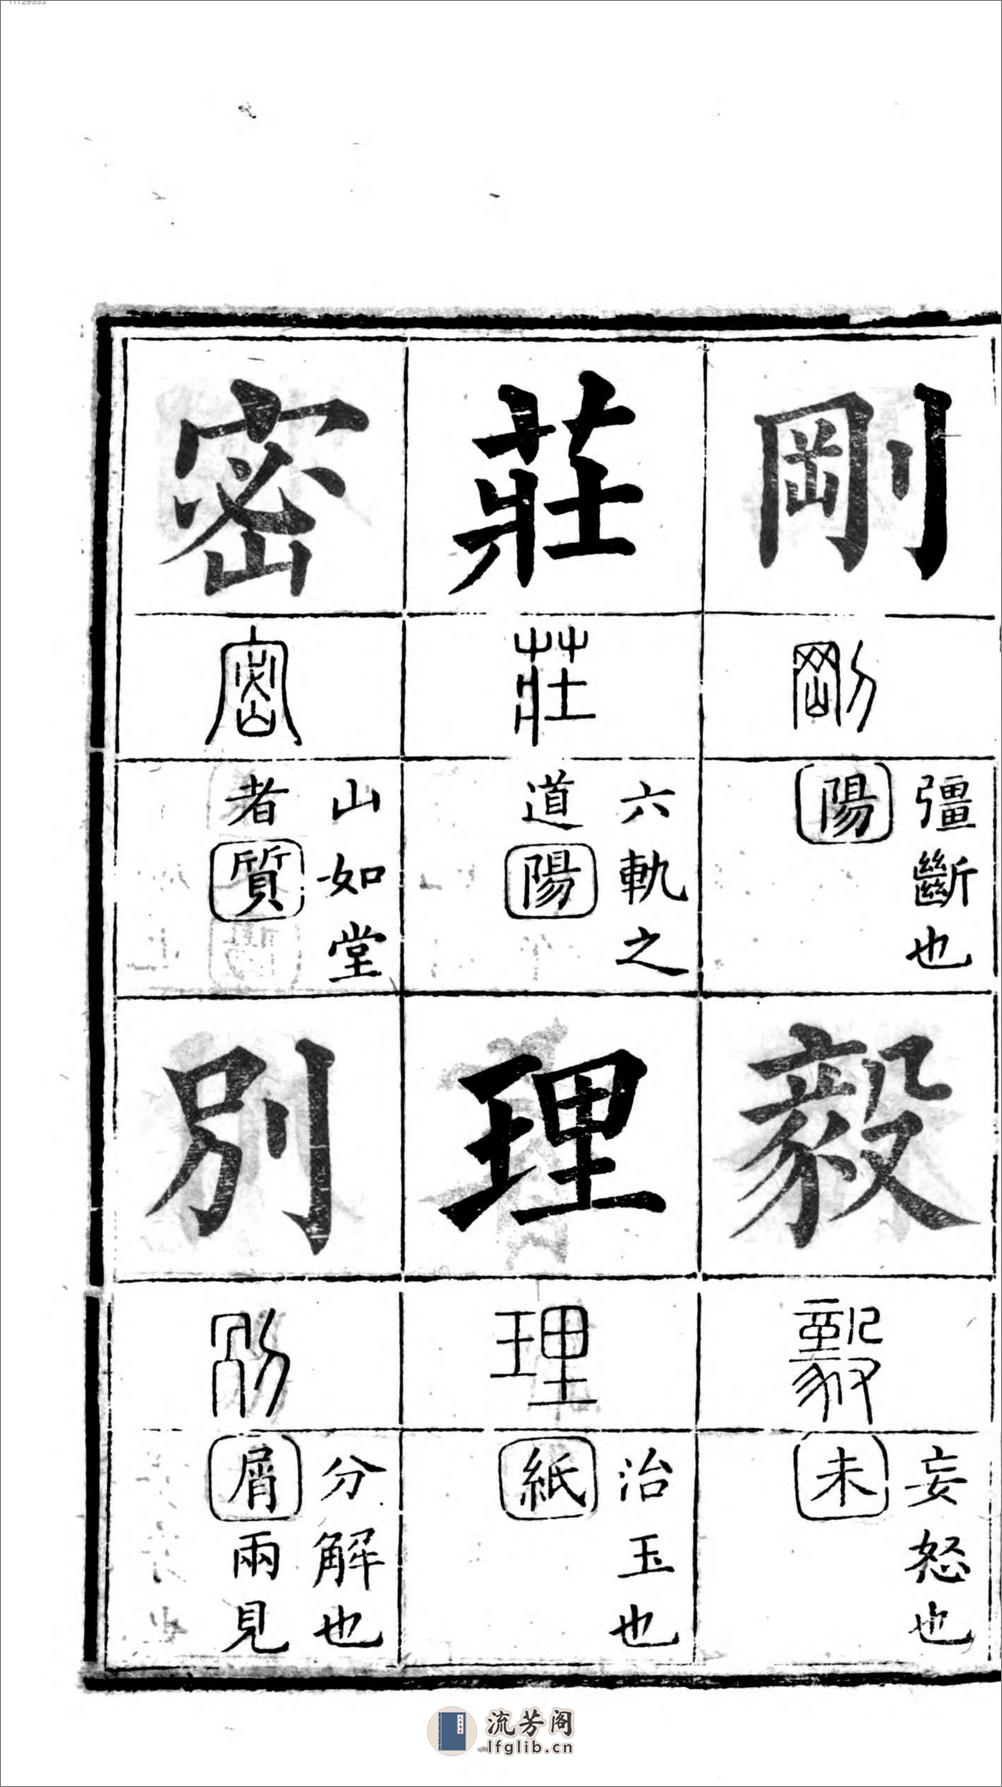 剛
剛
彊斷也
陽
毅
毅
妄怒也
未
莊
莊
六軌之
道陽
理
理
治玉也
紙
密
密
山如堂
者質
別
別
分解也
屑兩見
流芳阁
lfglib.cn